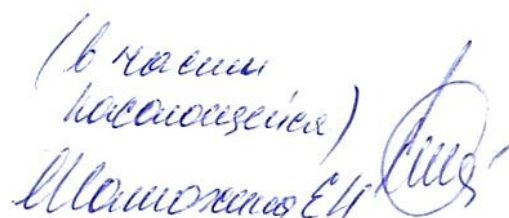 (в части
касающейся)
Матюхина ЕН